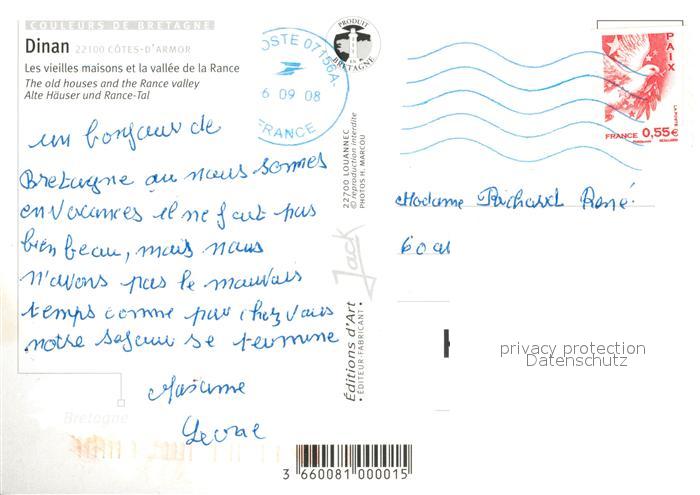 COULEURS DE BRETAGNE
Dinan 22100 CÔTES-D'ARMOR
Les vieilles maisons et la vallée de la Rance
The old houses and the Rance valley
Alte Häuser und Rance-Tal
un bonjour de
Bretagne ou nous sommes
en vacances il ne fait pas
bien beau, mais nous
n'avons pas le mauvais
temps comme par chez vous
notre sejour se termine
Madame
POSTE 07156A
6 09 08
FRANCE
PRODUIT
EN
BRETAGNE
22700 LOUANNEC
© reproduction interdite
PHOTOS H. MARCOU
Jack
Éditions d'Art
• ÉDITEUR-FABRICANT •
PAIX
LA POSTE
FRANCE 0,55€
Madame Richard René
60
privacy protection
Datenschutz
Bretagne
3 660081 000015